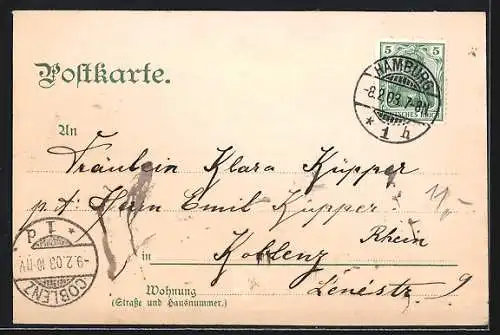 Postkarte.
5 5
DEUTSCHES REICH
HAMBURG
-8.2.03.7-8N
* 1 h
An
Fräulein Klara Küpper
p. A. Herrn Emil Küpper.
11,-
Koblenz Rhein
in
Wohnung Lenéstr. 9
(Straße und Hausnummer.)
COBLENZ
-9.2.03.10-11V
* 1 d